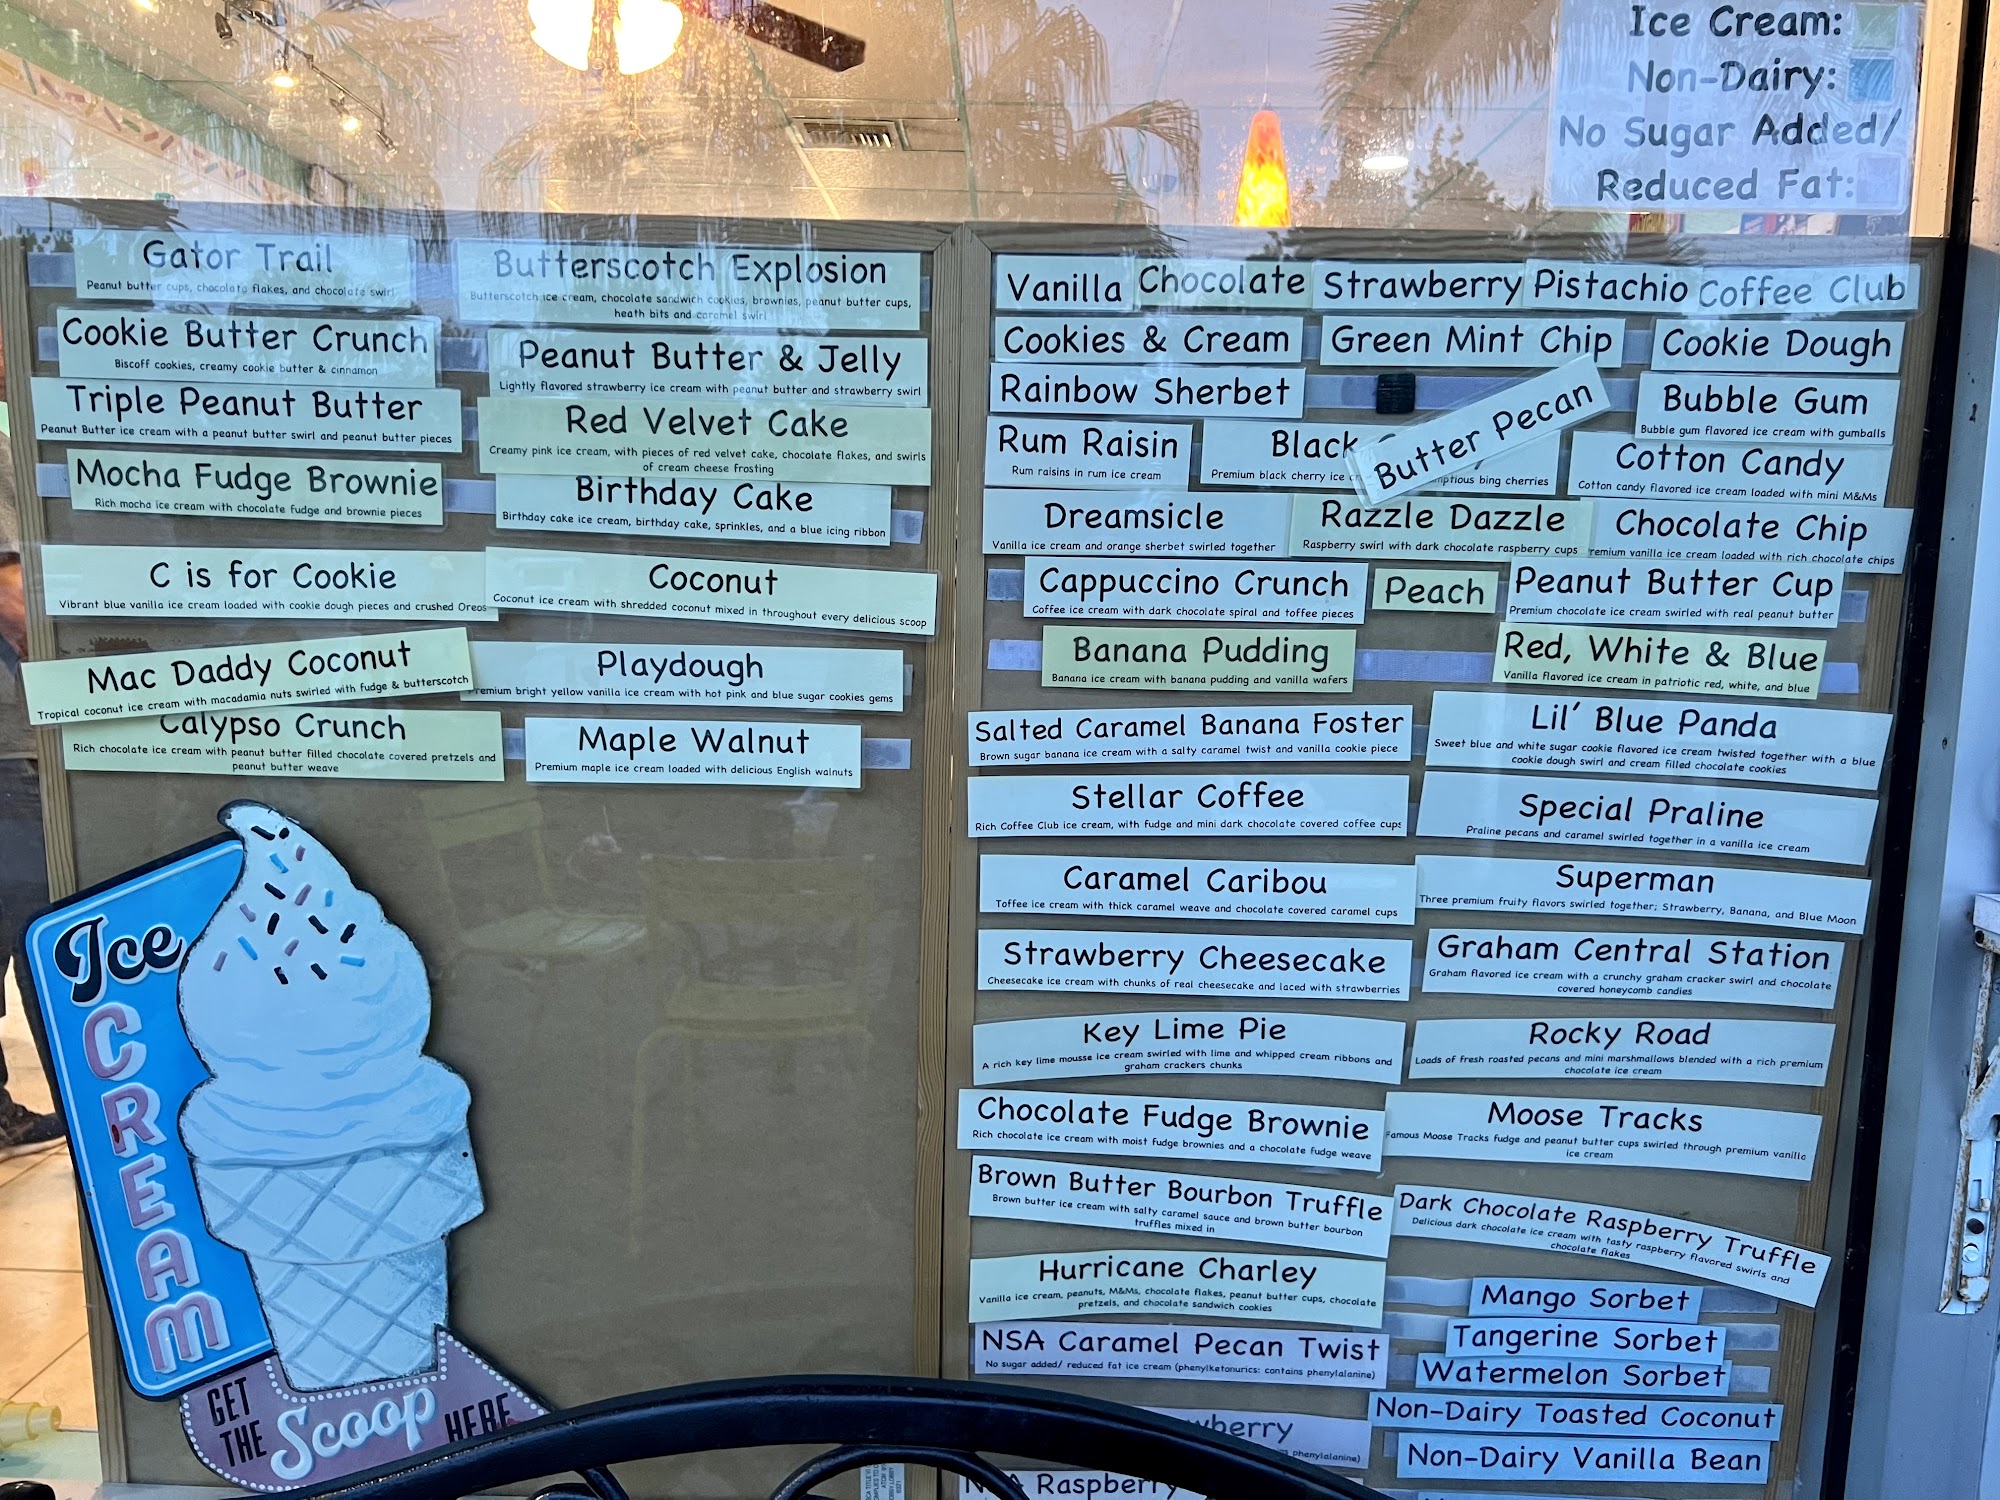 Ice Cream:
Non-Dairy:
No Sugar Added/
Reduced Fat:
Gator Trail
Peanut butter cups, chocolate flakes, and chocolate swirl
Cookie Butter Crunch
Biscoff cookies, creamy cookie butter & cinnamon
Triple Peanut Butter
Peanut Butter ice cream with a peanut butter swirl and peanut butter pieces
Mocha Fudge Brownie
Rich mocha ice cream with chocolate fudge and brownie pieces
C is for Cookie
Vibrant blue vanilla ice cream loaded with cookie dough pieces and crushed Oreos
Mac Daddy Coconut
Tropical coconut ice cream with macadamia nuts swirled with fudge & butterscotch
Calypso Crunch
Rich chocolate ice cream with peanut butter filled chocolate covered pretzels and
peanut butter weave
Butterscotch Explosion
Butterscotch ice cream, chocolate sandwich cookies, brownies, peanut butter cups,
heath bits and caramel swirl
Peanut Butter & Jelly
Lightly flavored strawberry ice cream with peanut butter and strawberry swirl
Red Velvet Cake
Creamy pink ice cream, with pieces of red velvet cake, chocolate flakes, and swirls
of cream cheese frosting
Birthday Cake
Birthday cake ice cream, birthday cake, sprinkles, and a blue icing ribbon
Coconut
Coconut ice cream with shredded coconut mixed in throughout every delicious scoop
Playdough
Premium bright yellow vanilla ice cream with hot pink and blue sugar cookies gems
Maple Walnut
Premium maple ice cream loaded with delicious English walnuts
Ice
CREAM
GET
THE
Scoop
HERE
Vanilla Chocolate Strawberry Pistachio Coffee Club
Cookies & Cream Green Mint Chip Cookie Dough
Rainbow Sherbet
Butter Pecan
Bubble Gum
Bubble gum flavored ice cream with gumballs
Rum Raisin
Rum raisins in rum ice cream
Black
Premium black cherry ice bing cherries
Cotton Candy
Cotton candy flavored ice cream loaded with mini M&Ms
Dreamsicle
Vanilla ice cream and orange sherbet swirled together
Razzle Dazzle
Raspberry swirl with dark chocolate raspberry cups
Chocolate Chip
Premium vanilla ice cream loaded with rich chocolate chips
Cappuccino Crunch
Coffee ice cream with dark chocolate spiral and toffee pieces
Peach
Peanut Butter Cup
Premium chocolate ice cream swirled with real peanut butter
Banana Pudding
Banana ice cream with banana pudding and vanilla wafers
Red, White & Blue
Vanilla flavored ice cream in patriotic red, white, and blue
Salted Caramel Banana Foster
Brown sugar banana ice cream with a salty caramel twist and vanilla cookie piece
Lil' Blue Panda
Sweet blue and white sugar cookie flavored ice cream twisted together with a blue
cookie dough swirl and cream filled chocolate cookies
Stellar Coffee
Rich Coffee Club ice cream, with fudge and mini dark chocolate covered coffee cups
Special Praline
Praline pecans and caramel swirled together in a vanilla ice cream
Caramel Caribou
Toffee ice cream with thick caramel weave and chocolate covered caramel cups
Superman
Three premium fruity flavors swirled together; Strawberry, Banana, and Blue Moon
Strawberry Cheesecake
Cheesecake ice cream with chunks of real cheesecake and laced with strawberries
Graham Central Station
Graham flavored ice cream with a crunchy graham cracker swirl and chocolate
covered honeycomb candies
Key Lime Pie
A rich key lime mousse ice cream swirled with lime and whipped cream ribbons and
graham crackers chunks
Rocky Road
Loads of fresh roasted pecans and mini marshmallows blended with a rich premium
chocolate ice cream
Chocolate Fudge Brownie
Rich chocolate ice cream with moist fudge brownies and a chocolate fudge weave
Moose Tracks
Famous Moose Tracks fudge and peanut butter cups swirled through premium vanilla
ice cream
Brown Butter Bourbon Truffle
Brown butter ice cream with salty caramel sauce and brown butter bourbon
truffles mixed in
Dark Chocolate Raspberry Truffle
Delicious dark chocolate ice cream with tasty raspberry flavored swirls and
chocolate flakes
Hurricane Charley
Vanilla ice cream, peanuts, M&Ms, chocolate flakes, peanut butter cups, chocolate
pretzels, and chocolate sandwich cookies
Mango Sorbet
Tangerine Sorbet
Watermelon Sorbet
NSA Caramel Pecan Twist
No sugar added/ reduced fat ice cream (phenylketonurics: contains phenylalanine)
Non-Dairy Toasted Coconut
Non-Dairy Vanilla Bean
wberry
phenylalanine)
Raspberry